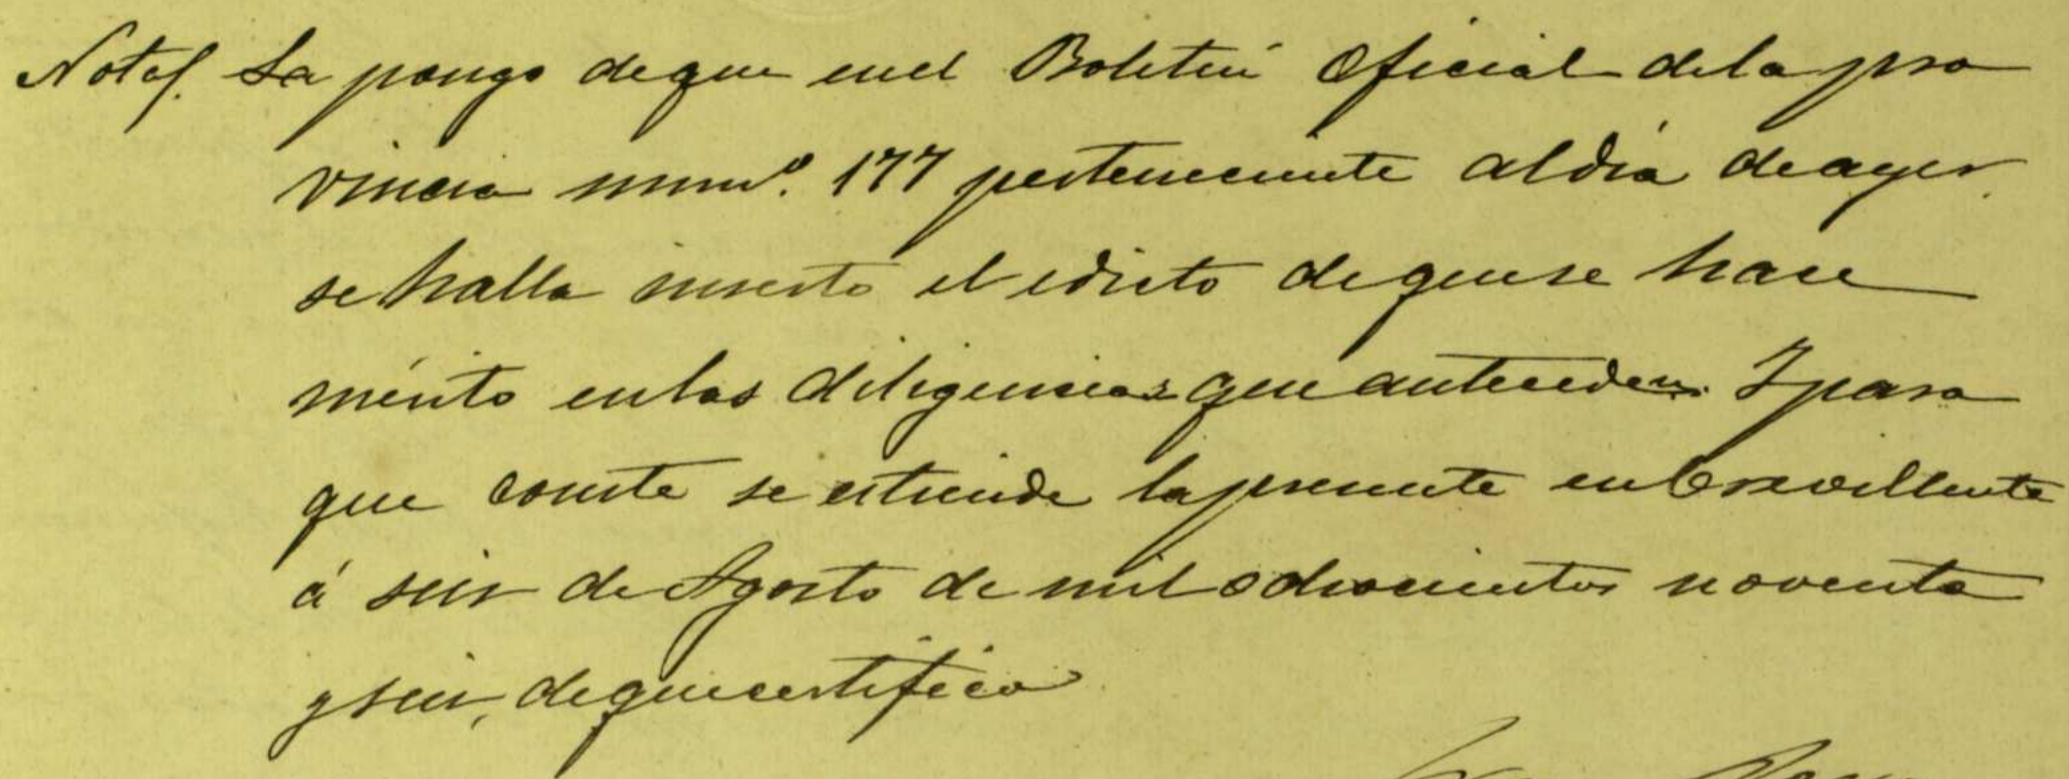 Nota/. La pongo de que en el Boletin Oficial de la pro
vincia numº. 177 perteneciente al dia de ayer
se halla inserto el edicto de que se hace
mérito en las diligencias que anteceden. Y para
que conste se estiende la presente en Crevillente
á seis de Agosto de mil ochocientos noventa
y seis, de que certifico